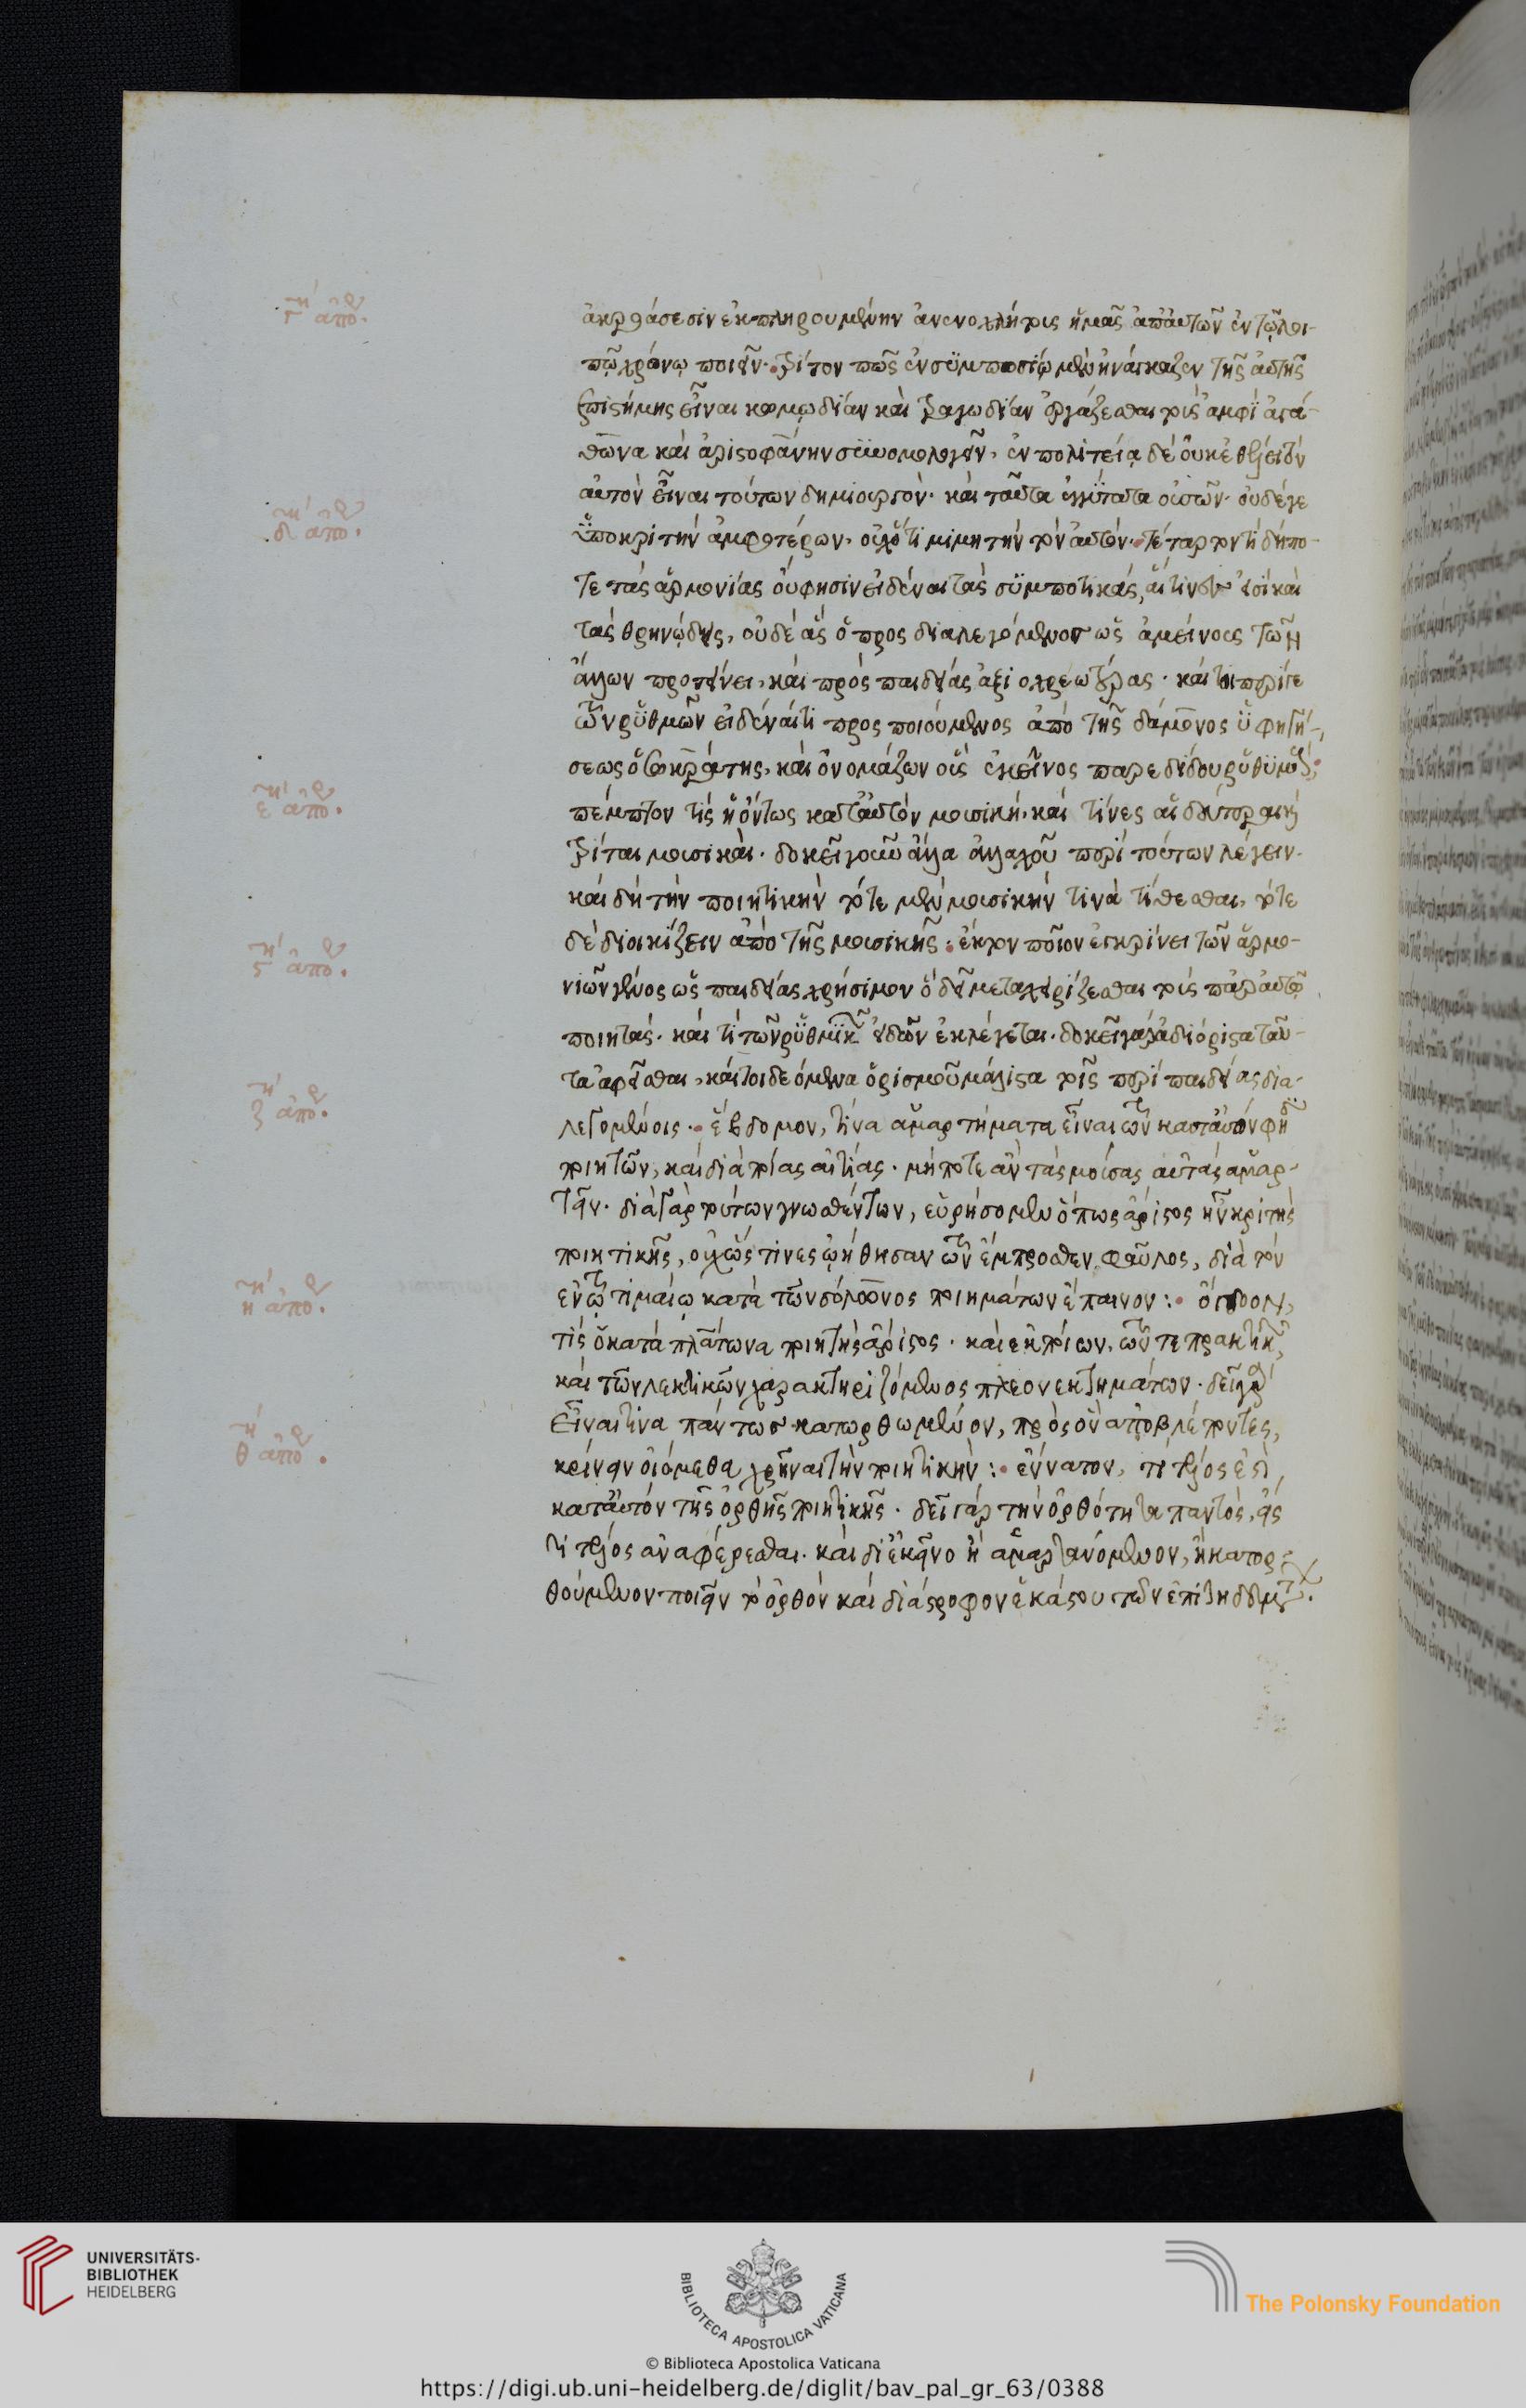 γ´ ἀπορ.
ἀκροάσεσιν ἐκπληρουμένην ἀνενοχλήτους ἡμᾶς ἀπ' αὐτῶν ἐν τῷ λοι-
πῷ χρόνῳ ποιεῖν. τρίτον πῶς ἐν συμποσίῳ μὲν ἠνάγκαζεν τῆς αὐτῆς
ἐπιστήμης εἶναι κωμῳδίαν καὶ τραγῳδίαν ἐργάζεσθαι τοὺς ἀμφὶ ἀγά-
θωνα καὶ ἀριστοφάνην συνομολογεῖν, ἐν πολιτείᾳ δὲ οὐκ ἐθέλει τὸν
δ´ ἀπορ.
αὐτὸν εἶναι τούτων δημιουργόν. καὶ ταῦτα ἐγγύτατα οὐσῶν. οὐδέ γε
ὑποκριτὴν ἀμφοτέρων, οὐχ ὅτι μιμητὴν τὸν αὐτόν. τέταρτον τί δήπο-
τε τὰς ἁρμονίας οὔ φησιν εἰδέναι τὰς συμποτικάς, αἵτινές εἰσι καὶ
τὰς θρηνώδεις, οὐδὲ ἃς ὁ προσδιαλεγόμενος ὡς ἀμείνους τῶν
ἄλλων προτείνει, καὶ πρὸς παιδείας ἀξιοχρεωτέρας. καίτοι περί γε
τῶν ῥυθμῶν εἰδέναι τι προσποιούμενος ἀπὸ τῆς δάμωνος ὑφηγή-
σεως ὁ σωκράτης, καὶ ὀνομάζων οὓς ἐκεῖνος παρεδίδου ῥυθμούς.
ε´ ἀπορ.
πέμπτον τίς ἡ ὄντως κατ' αὐτὸν μουσική, καὶ τίνες αἱ δεύτεραι καὶ
τρίται μουσικαί. δοκεῖ γοῦν ἄλλα ἀλλαχοῦ περὶ τούτων λέγειν.
καὶ δὴ τὴν ποιητικὴν τότε μὲν μουσικήν τινα τίθεσθαι, τότε
ϛ´ ἀπορ.
δὲ διοικίζειν ἀπὸ τῆς μουσικῆς. ἕκτον ποῖον ἐγκρίνει τῶν ἁρμο-
νιῶν γένος ὡς παιδείας χρήσιμον ὃ δεῖ μεταχειρίζεσθαι τοὺς παρ' αὐτῷ
ποιητάς. καὶ τί τῶν ῥυθμικῶν εἰδῶν ἐκλέγεται. δοκεῖ γὰρ ἀδιόριστα ταῦ-
ζ´ ἀπορ.
τα ἀφεῖσθαι, καίτοι δεόμενα ὁρισμοῦ μάλιστα τοῖς περὶ παιδείας δια-
λεγομένοις. ἕβδομον, τίνα ἁμαρτήματα εἶναι τῶν κατ' αὐτόν φησι
ποιητῶν, καὶ διὰ ποίας αἰτίας. μήποτε ἂν τὰς μούσας αὐτὰς ἁμαρ-
τεῖν. διὰ γὰρ τούτων γνωσθέντων, εὑρήσομεν ὅπως ἄριστος ἦν κριτὴς
ποιητικῆς, οὐχ ὥς τινες ᾠήθησαν τῶν ἔμπροσθεν φαῦλος, διὰ τὸν
η´ ἀπορ.
ἐν τῷ τιμαίῳ κατὰ τῶν σόλωνος ποιημάτων ἔπαινον: ὄγδοον,
τίς ὁ κατὰ πλάτωνα ποιητὴς ἄριστος. καὶ ἐκ ποίων, τῶν τε πρακτικῶν
καὶ τῶν λεκτικῶν χαρακτηριζόμενος πλεονεκτημάτων. δεῖ γὰρ
θ´ ἀπορ.
εἶναί τινα πάντως κατωρθωμένον, πρὸς ὃν ἀποβλέποντες,
κρίνειν οἰόμεθα χρῆναι τὴν ποιητικήν: ἔννατον, τί τέλος ἐστὶ
κατ' αὐτὸν τῆς ὀρθῆς ποιητικῆς. δεῖ γὰρ τὴν ὀρθότητα παντὸς, εἴς
τι τέλος ἀναφέρεσθαι. καὶ δι' ἐκεῖνο ἢ ἁμαρτανόμενον, ἢ κατορ-
θούμενον ποιεῖν τὸ ὀρθὸν καὶ διάστροφον ἑκάστου τῶν ἐπιτηδευμάτων.
UNIVERSITÄTS-
BIBLIOTHEK
HEIDELBERG
BIBLIOTECA APOSTOLICA VATICANA
The Polonsky Foundation
© Biblioteca Apostolica Vaticana
https://digi.ub.uni-heidelberg.de/diglit/bav_pal_gr_63/0388